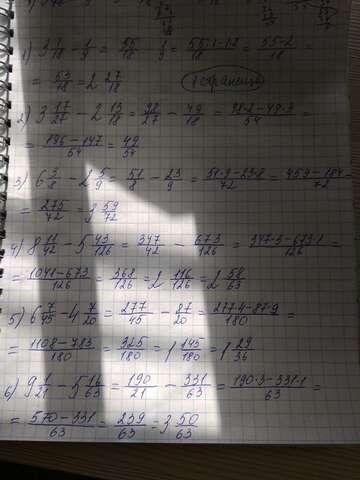 1) 3 1/18 - 1/9 = 55/18 - 1/9 = 55·1-1·2/18 = 55-2/18 =
= 53/18 = 2 27/18
1 страница
2) 3 17/27 - 2 13/18 = 98/27 - 49/18 = 98·2-49·3/54 =
= 196-147/54 = 49/54
3) 6 3/8 - 2 5/9 = 51/8 - 23/9 = 51·9-23·8/72 = 459-184/72 =
= 275/72 = 3 59/72
4) 8 11/42 - 5 43/126 = 347/42 - 673/126 = 347·3-673·1/126 =
= 1041-673/126 = 368/126 = 2 116/126 = 2 58/63
5) 6 7/45 - 4 7/20 = 277/45 - 87/20 = 277·4-87·9/180 =
= 1108-783/180 = 325/180 = 1 145/180 = 1 29/36
6) 9 1/21 - 5 16/63 = 190/21 - 331/63 = 190·3-331·1/63 =
= 570-331/63 = 239/63 = 3 50/63